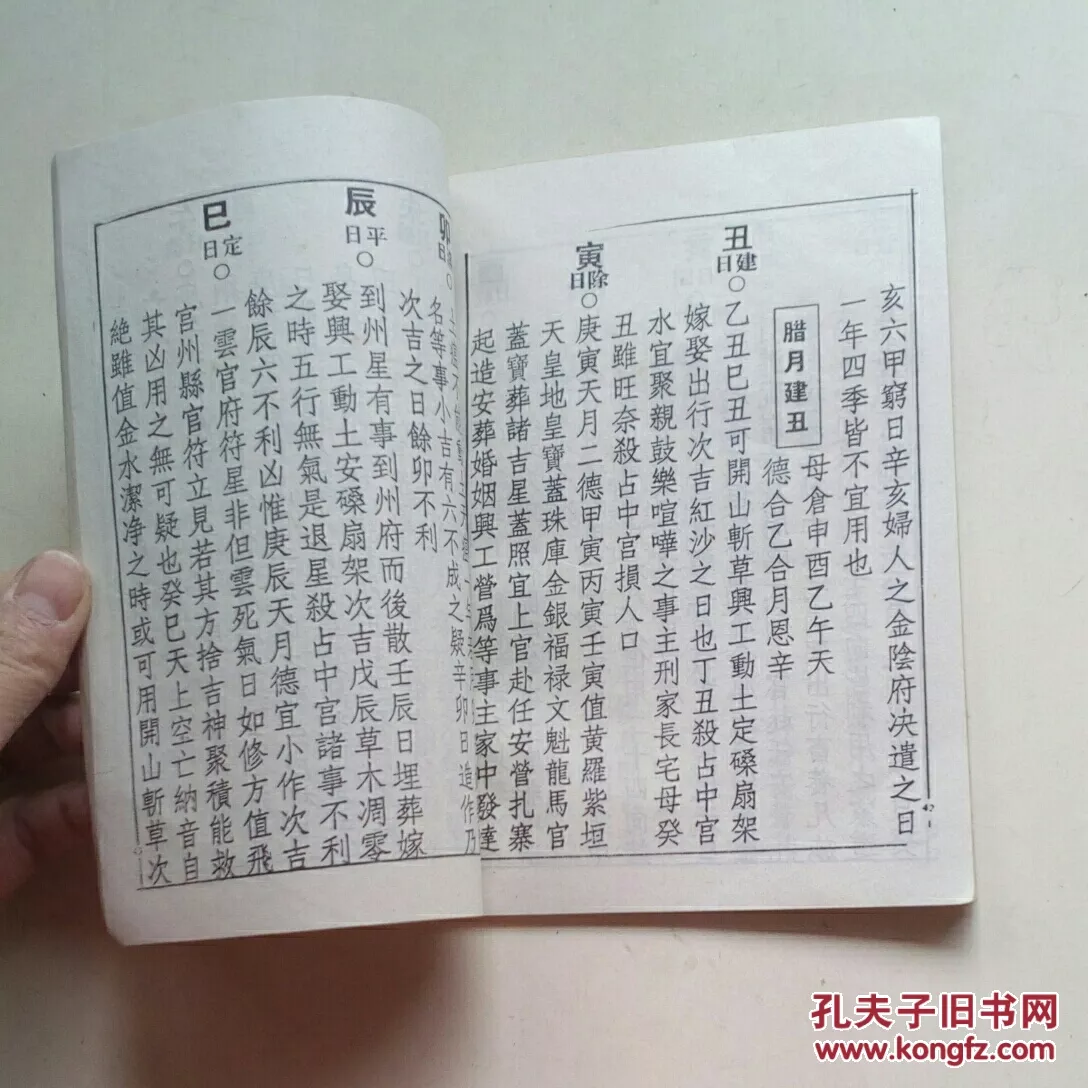 亥六甲窮日辛亥婦人之金陰府决遣之日
一年四季皆不宜用也
腊月建丑
母倉申酉乙午天
德合乙合月恩辛
丑建日○乙丑巳丑可開山斬草興工動土定磉扇架
嫁娶出行次吉紅沙之日也丁丑殺占中宮
水宜聚親鼓樂喧嘩之事主刑家長宅母癸
丑雖旺奈殺占中宮損人口
寅除日○庚寅天月二德甲寅丙寅壬寅值黄羅紫垣
天皇地皇寶蓋珠庫金銀福禄文魁龍馬官
蓋寶葬諸吉星蓋照宜上官赴任安營扎寨
起造安葬婚姻興工營爲等事主家中發達
卯日○
之疑辛卯日造作乃
名等事小吉有六不成
次吉之日餘卯不利
辰平日○到州星有事到州府而後散壬辰日埋葬嫁
娶興工動土安磉扇架次吉戊辰草木凋零
之時五行無氣是退星殺占中宮諸事不利
餘辰六不利凶惟庚辰天月德宜小作次吉
巳定日○一雲官府符星非但雲死氣日如修方值飛
宮州縣官符立見若其方捨吉神聚積能救
其凶用之無可疑也癸巳天上空亡納音自
絶雖值金水潔净之時或可用開山斬草次
孔夫子旧书网
www.kongfz.com